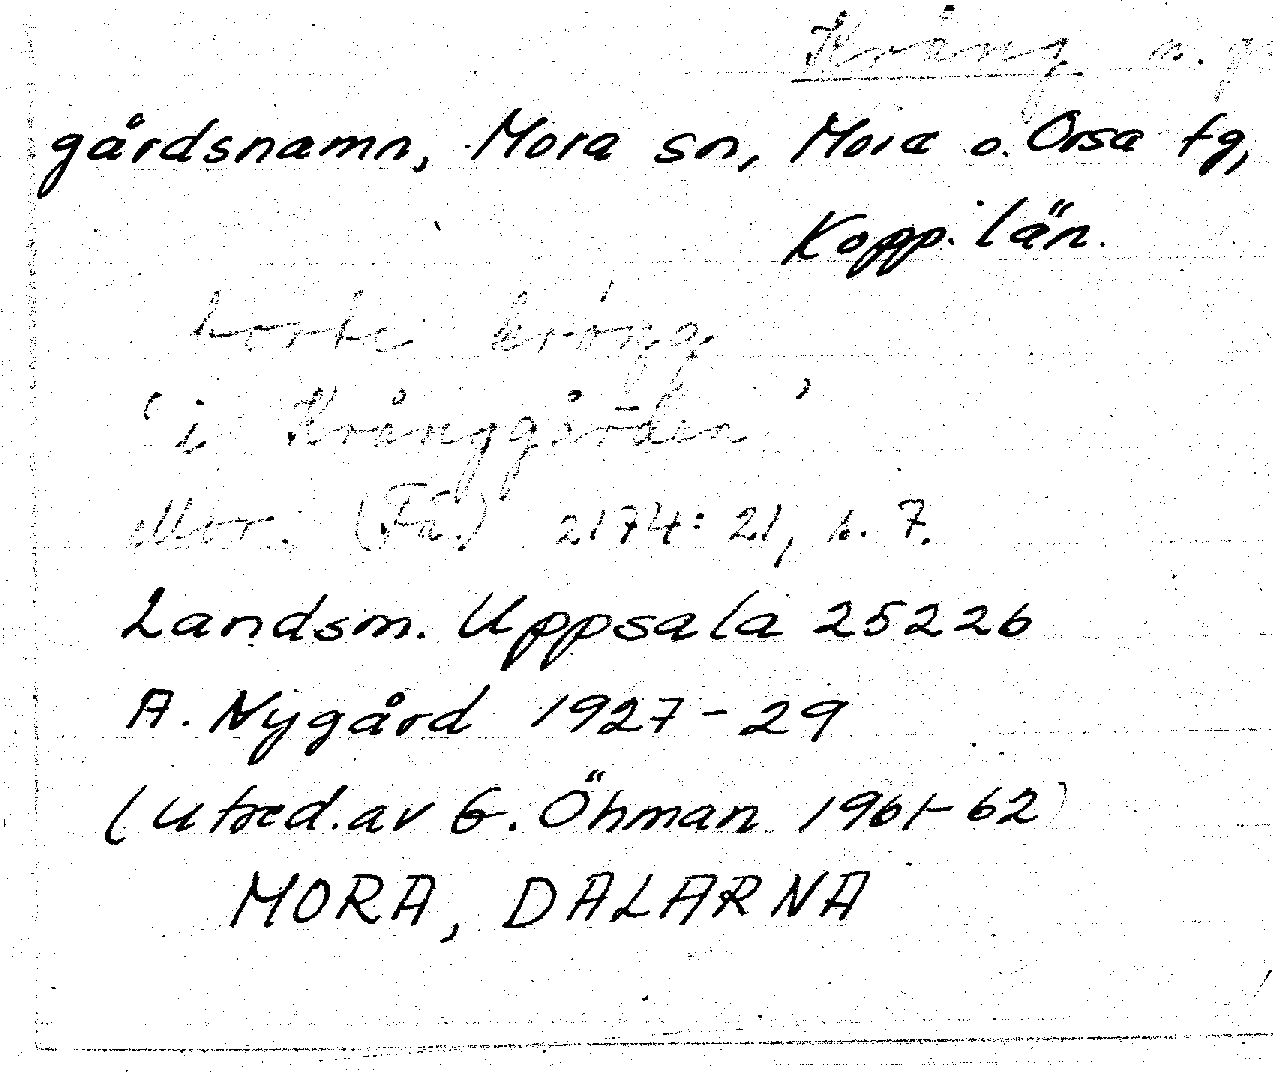 Krång n. g.
gårdsnamn, Mora sn, Mora o. Orsa tg,
Kopp. län.
krón̨g
'i Krånggården'
Mor. (Få.) 2174:21, s. 7.
Landsm. Uppsala 25226
A. Nygård 1927-29
(utred. av G. Öhman 1961-62)
MORA, DALARNA